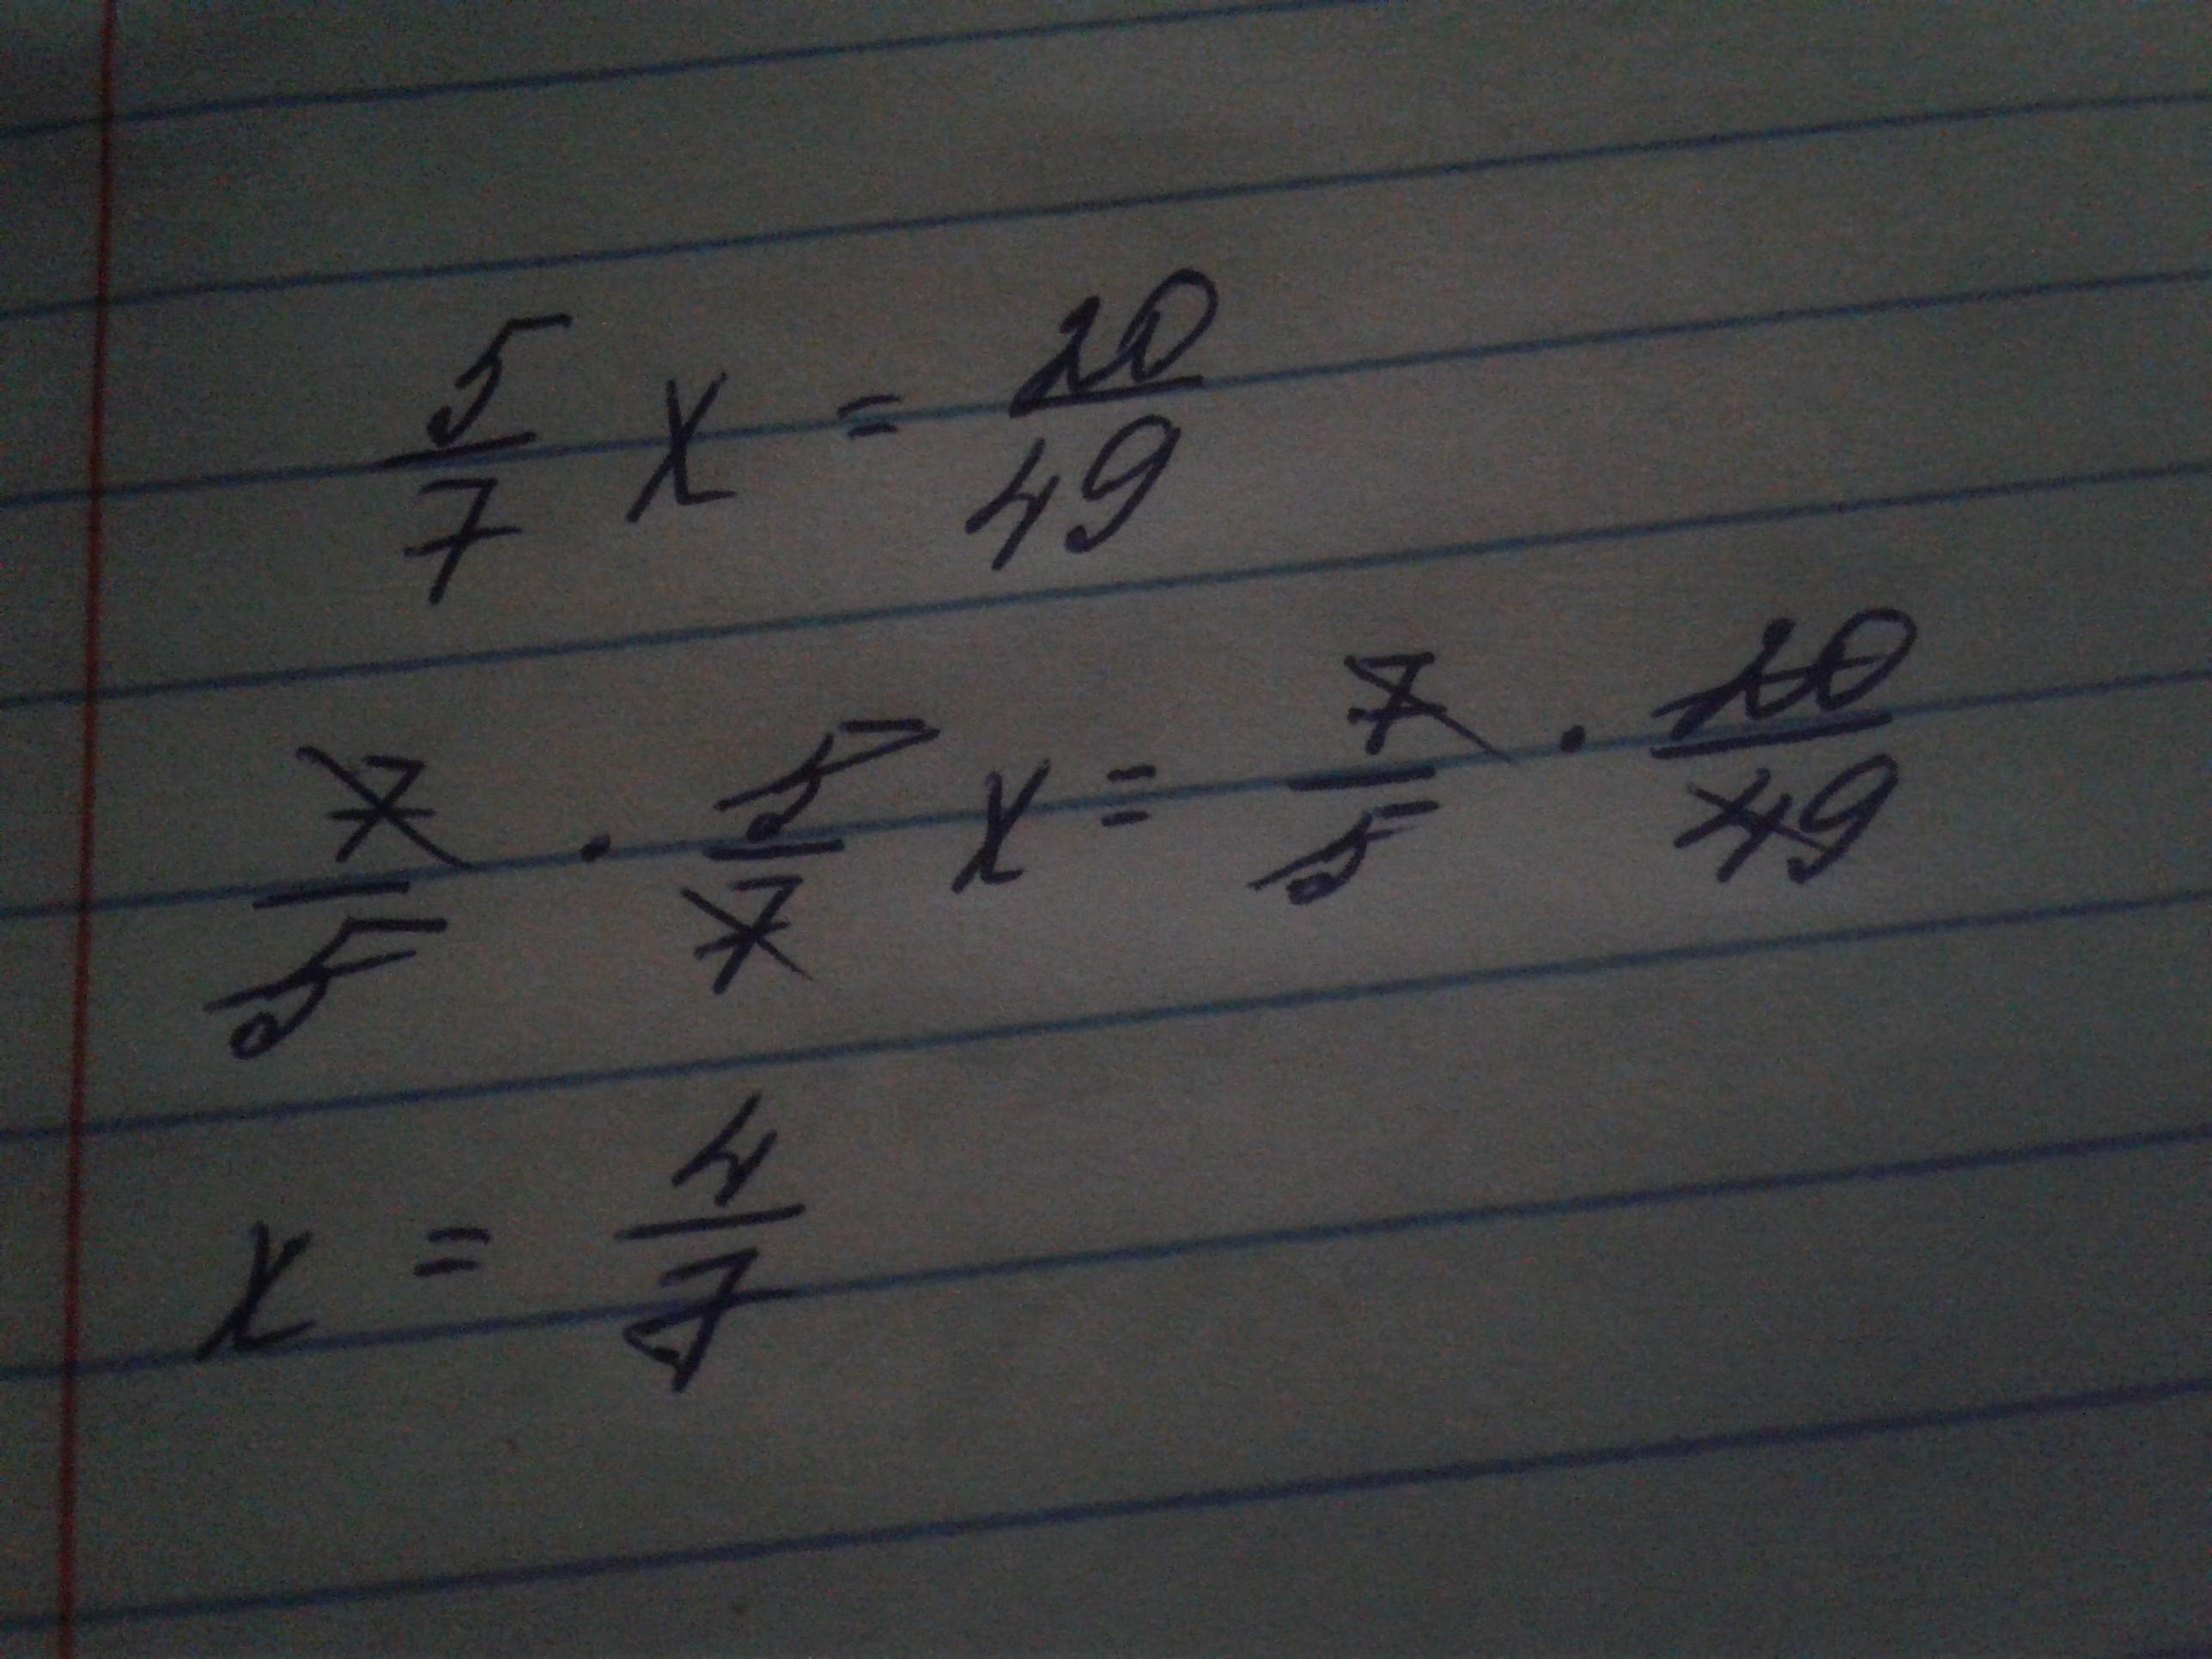 5/7 x = 20/49
7/5 · 5/7 x = 7/5 · 20/49
x = 4/7